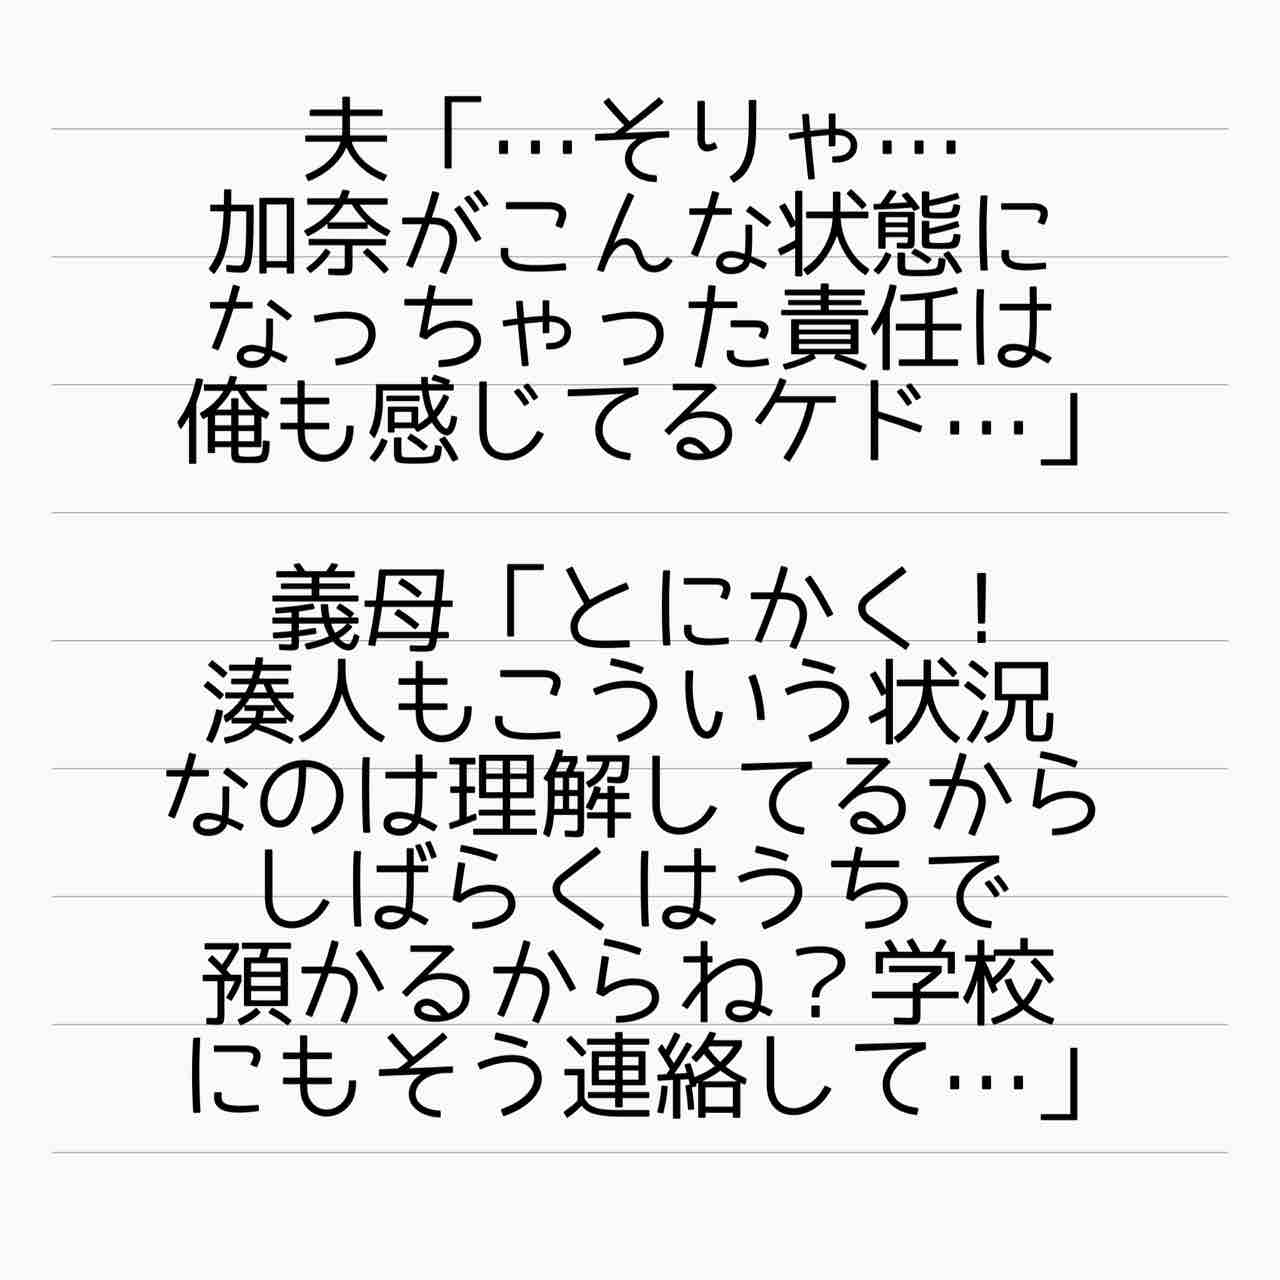 夫「…そりゃ…
加奈がこんな状態に
なっちゃった責任は
俺も感じてるケド…」
義母「とにかく！
湊人もこういう状況
なのは理解してるから
しばらくはうちで
預かるからね？学校
にもそう連絡して…」